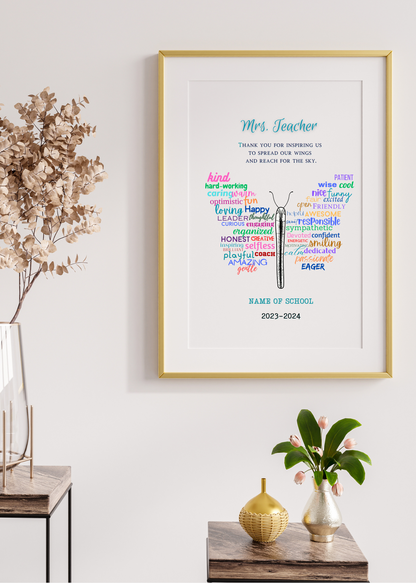 Mrs. Teacher
THANK YOU FOR INSPIRING US
TO SPREAD OUR WINGS
AND REACH FOR THE SKY.
kind
hard-working
caring warm
optimistic fun
loving Happy
LEADER thoughtful
CURIOUS engaging
organized
HONEST CREATIVE
inspiring selfless
playful COACH
AMAZING
gentle
PATIENT
wise cool
nice funny
excited
open FRIENDLY
helpful AWESOME
responsible
sympathetic
Devoted confident
ENERGETIC smiling
calm dedicated
passionate
EAGER
NAME OF SCHOOL
2023-2024